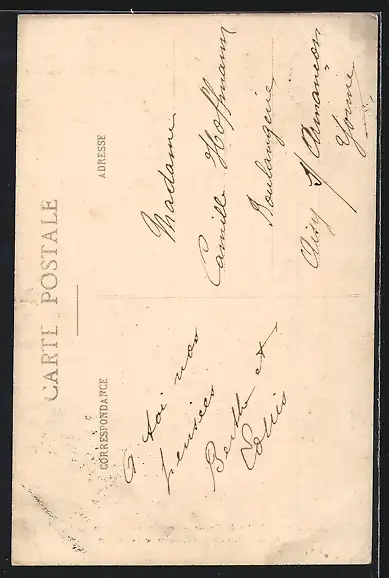 CARTE POSTALE
CORRESPONDANCE
A toi nos
pensées
Berthe et
ADRESSE
Madame
Camille Hoffmann
Boulangerie
Aisy s/ Armançon
Yonne